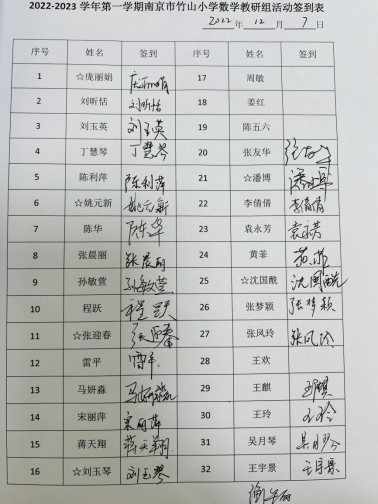 2022-2023 学年第一学期南京市竹山小学数学教研组活动签到表
2022 年 12 月 7 日
序号 姓名 签到 序号 姓名 签到
1 ☆庞丽娟 17 周敏
2 刘昕恬 刘昕恬 18 姜红
3 刘玉英 刘玉英 19 陈五六
4 丁慧琴 丁慧琴 20 张友华 张友华
5 陈利萍 陈利萍 21 ☆潘博 潘博
6 ☆姚元新 姚元新 22 李倩倩 李倩倩
7 陈华 陈华 23 袁永芳 袁永芳
8 张晨丽 张晨丽 24 黄菲 黄菲
9 孙敏萱 孙敏萱 25 ☆沈国酰 沈国酰
10 程跃 程跃 26 张梦颖 张梦颖
11 ☆张迎春 张迎春 27 张凤玲 张凤玲
12 雷平 雷平 28 王欢
13 马妍淼 马妍淼 29 王麒 王麒
14 宋丽萍 宋丽萍 30 王玲 王玲
15 蒋天翔 蒋天翔 31 吴月琴 吴月琴
16 ☆刘玉琴 刘玉琴 32 王宇景